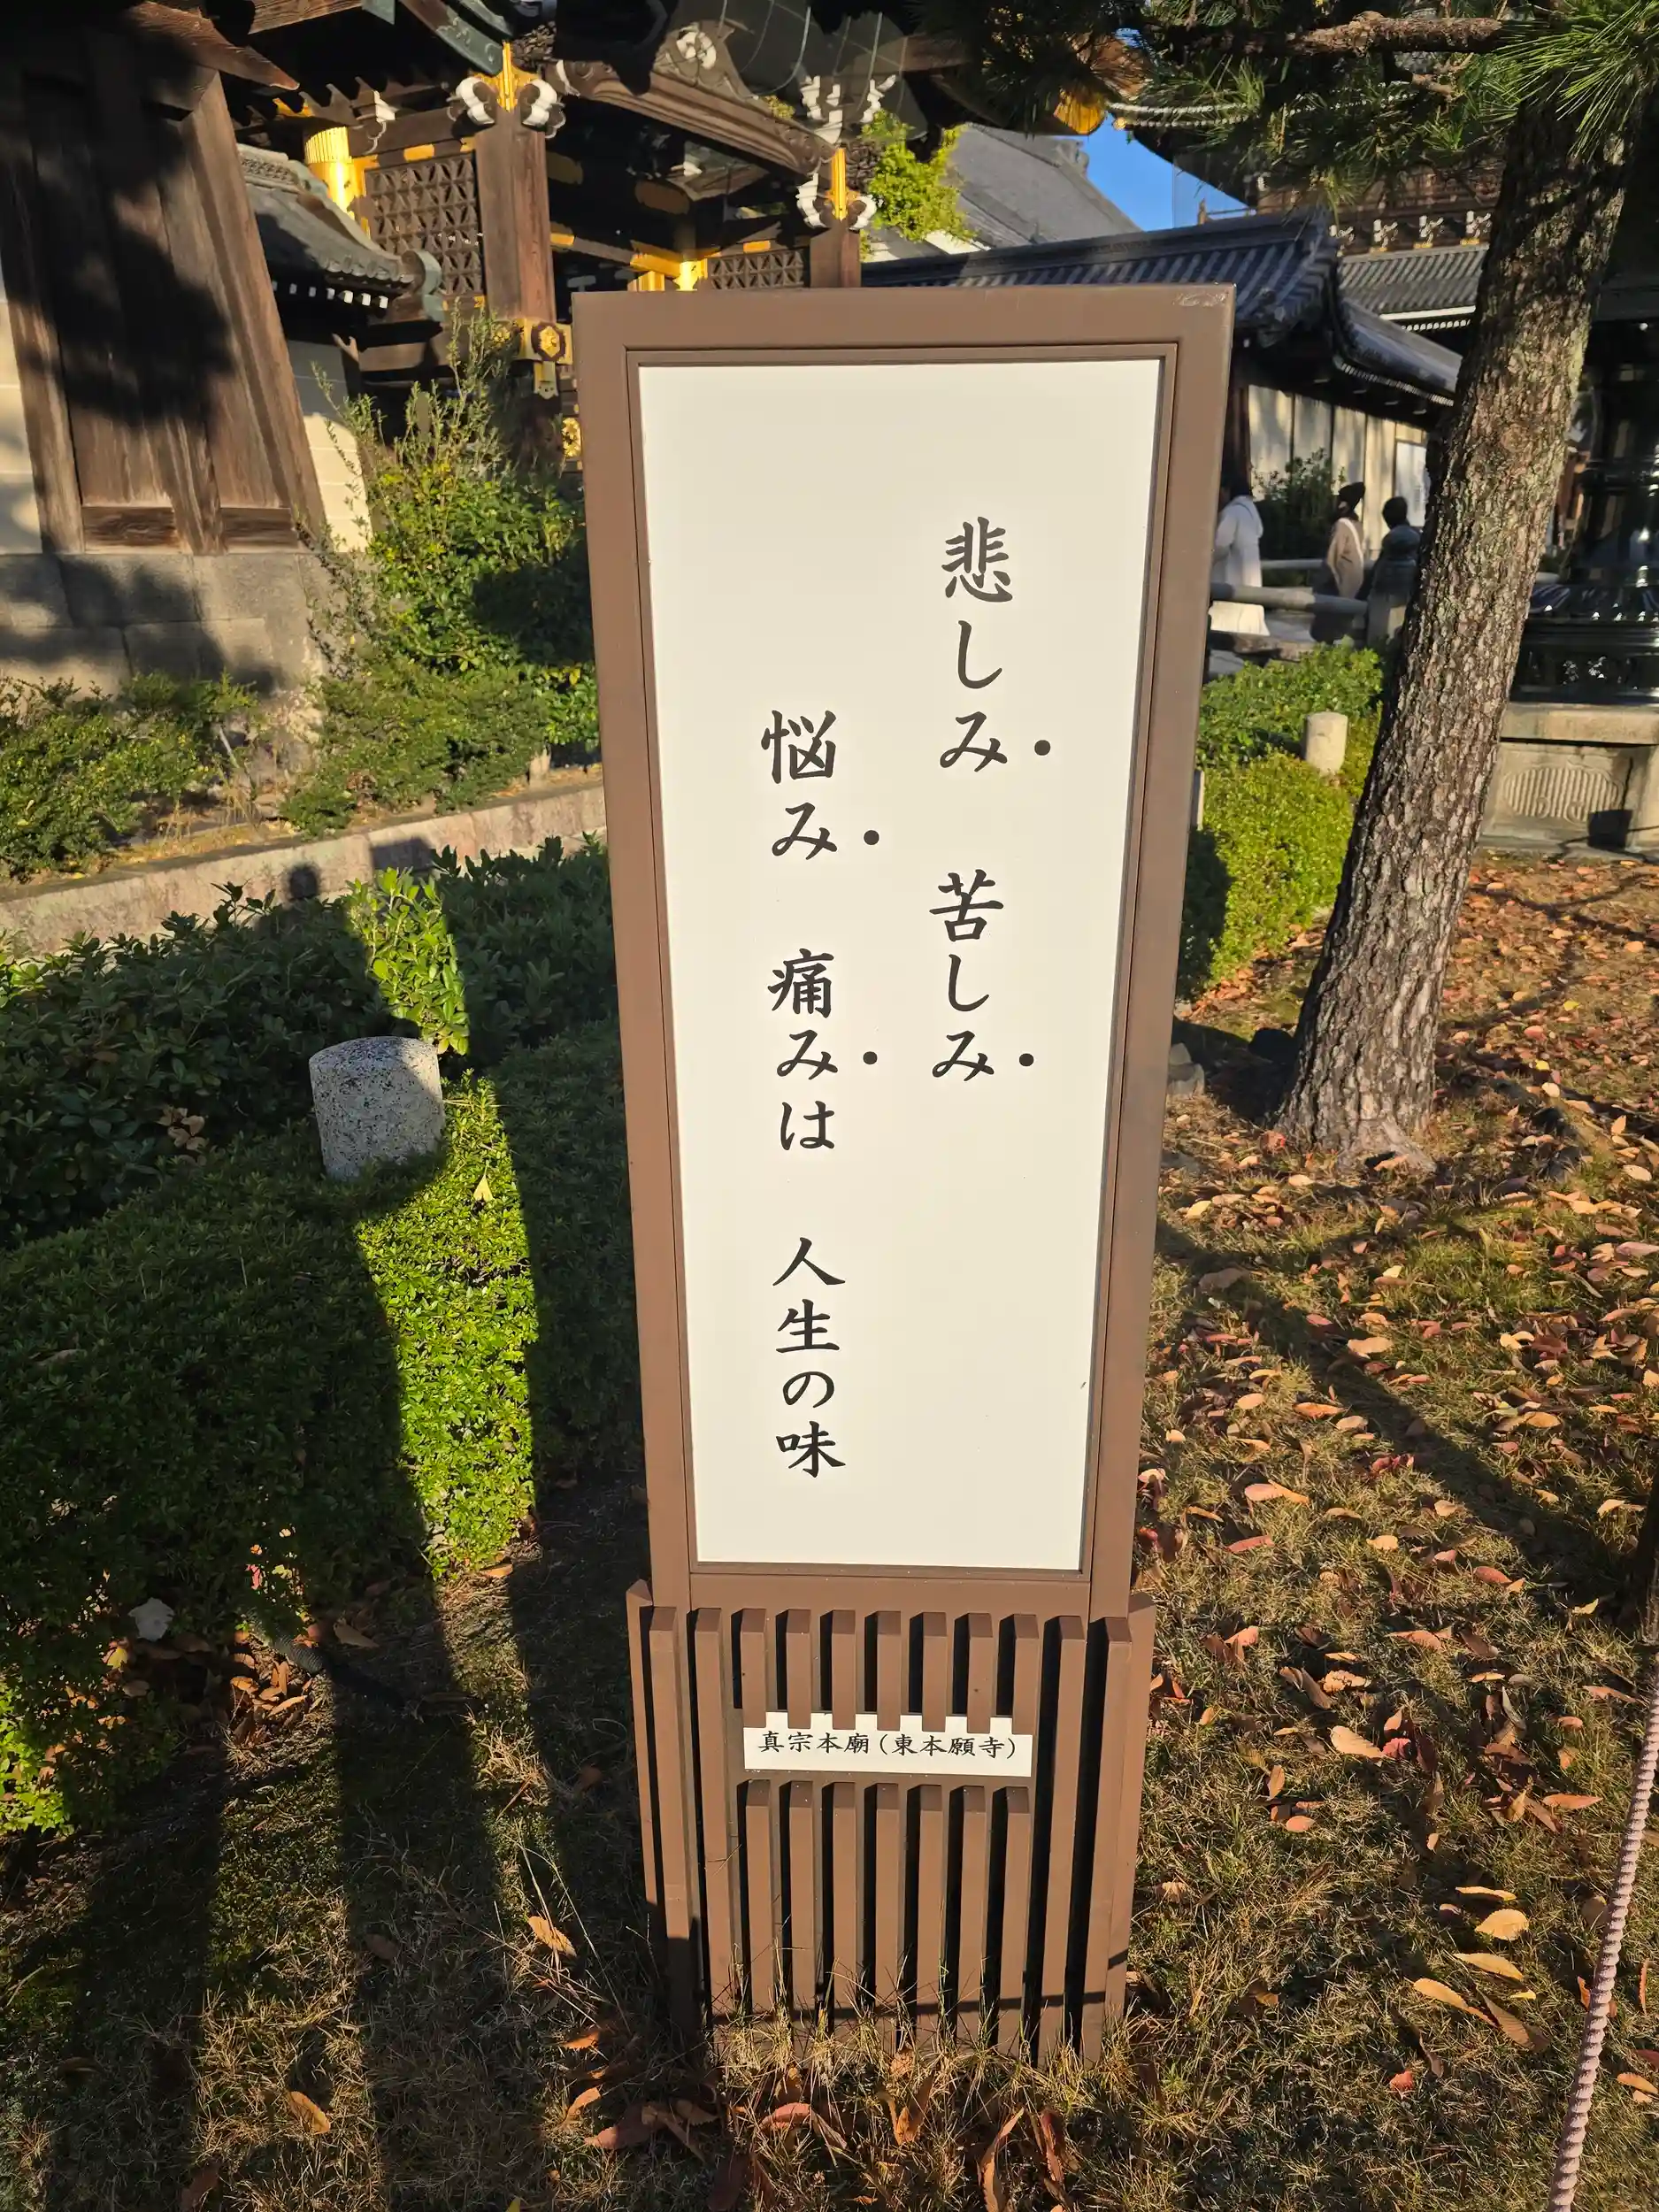 悲しみ　苦しみ
悩み　痛みは　人生の味
真宗本廟（東本願寺）